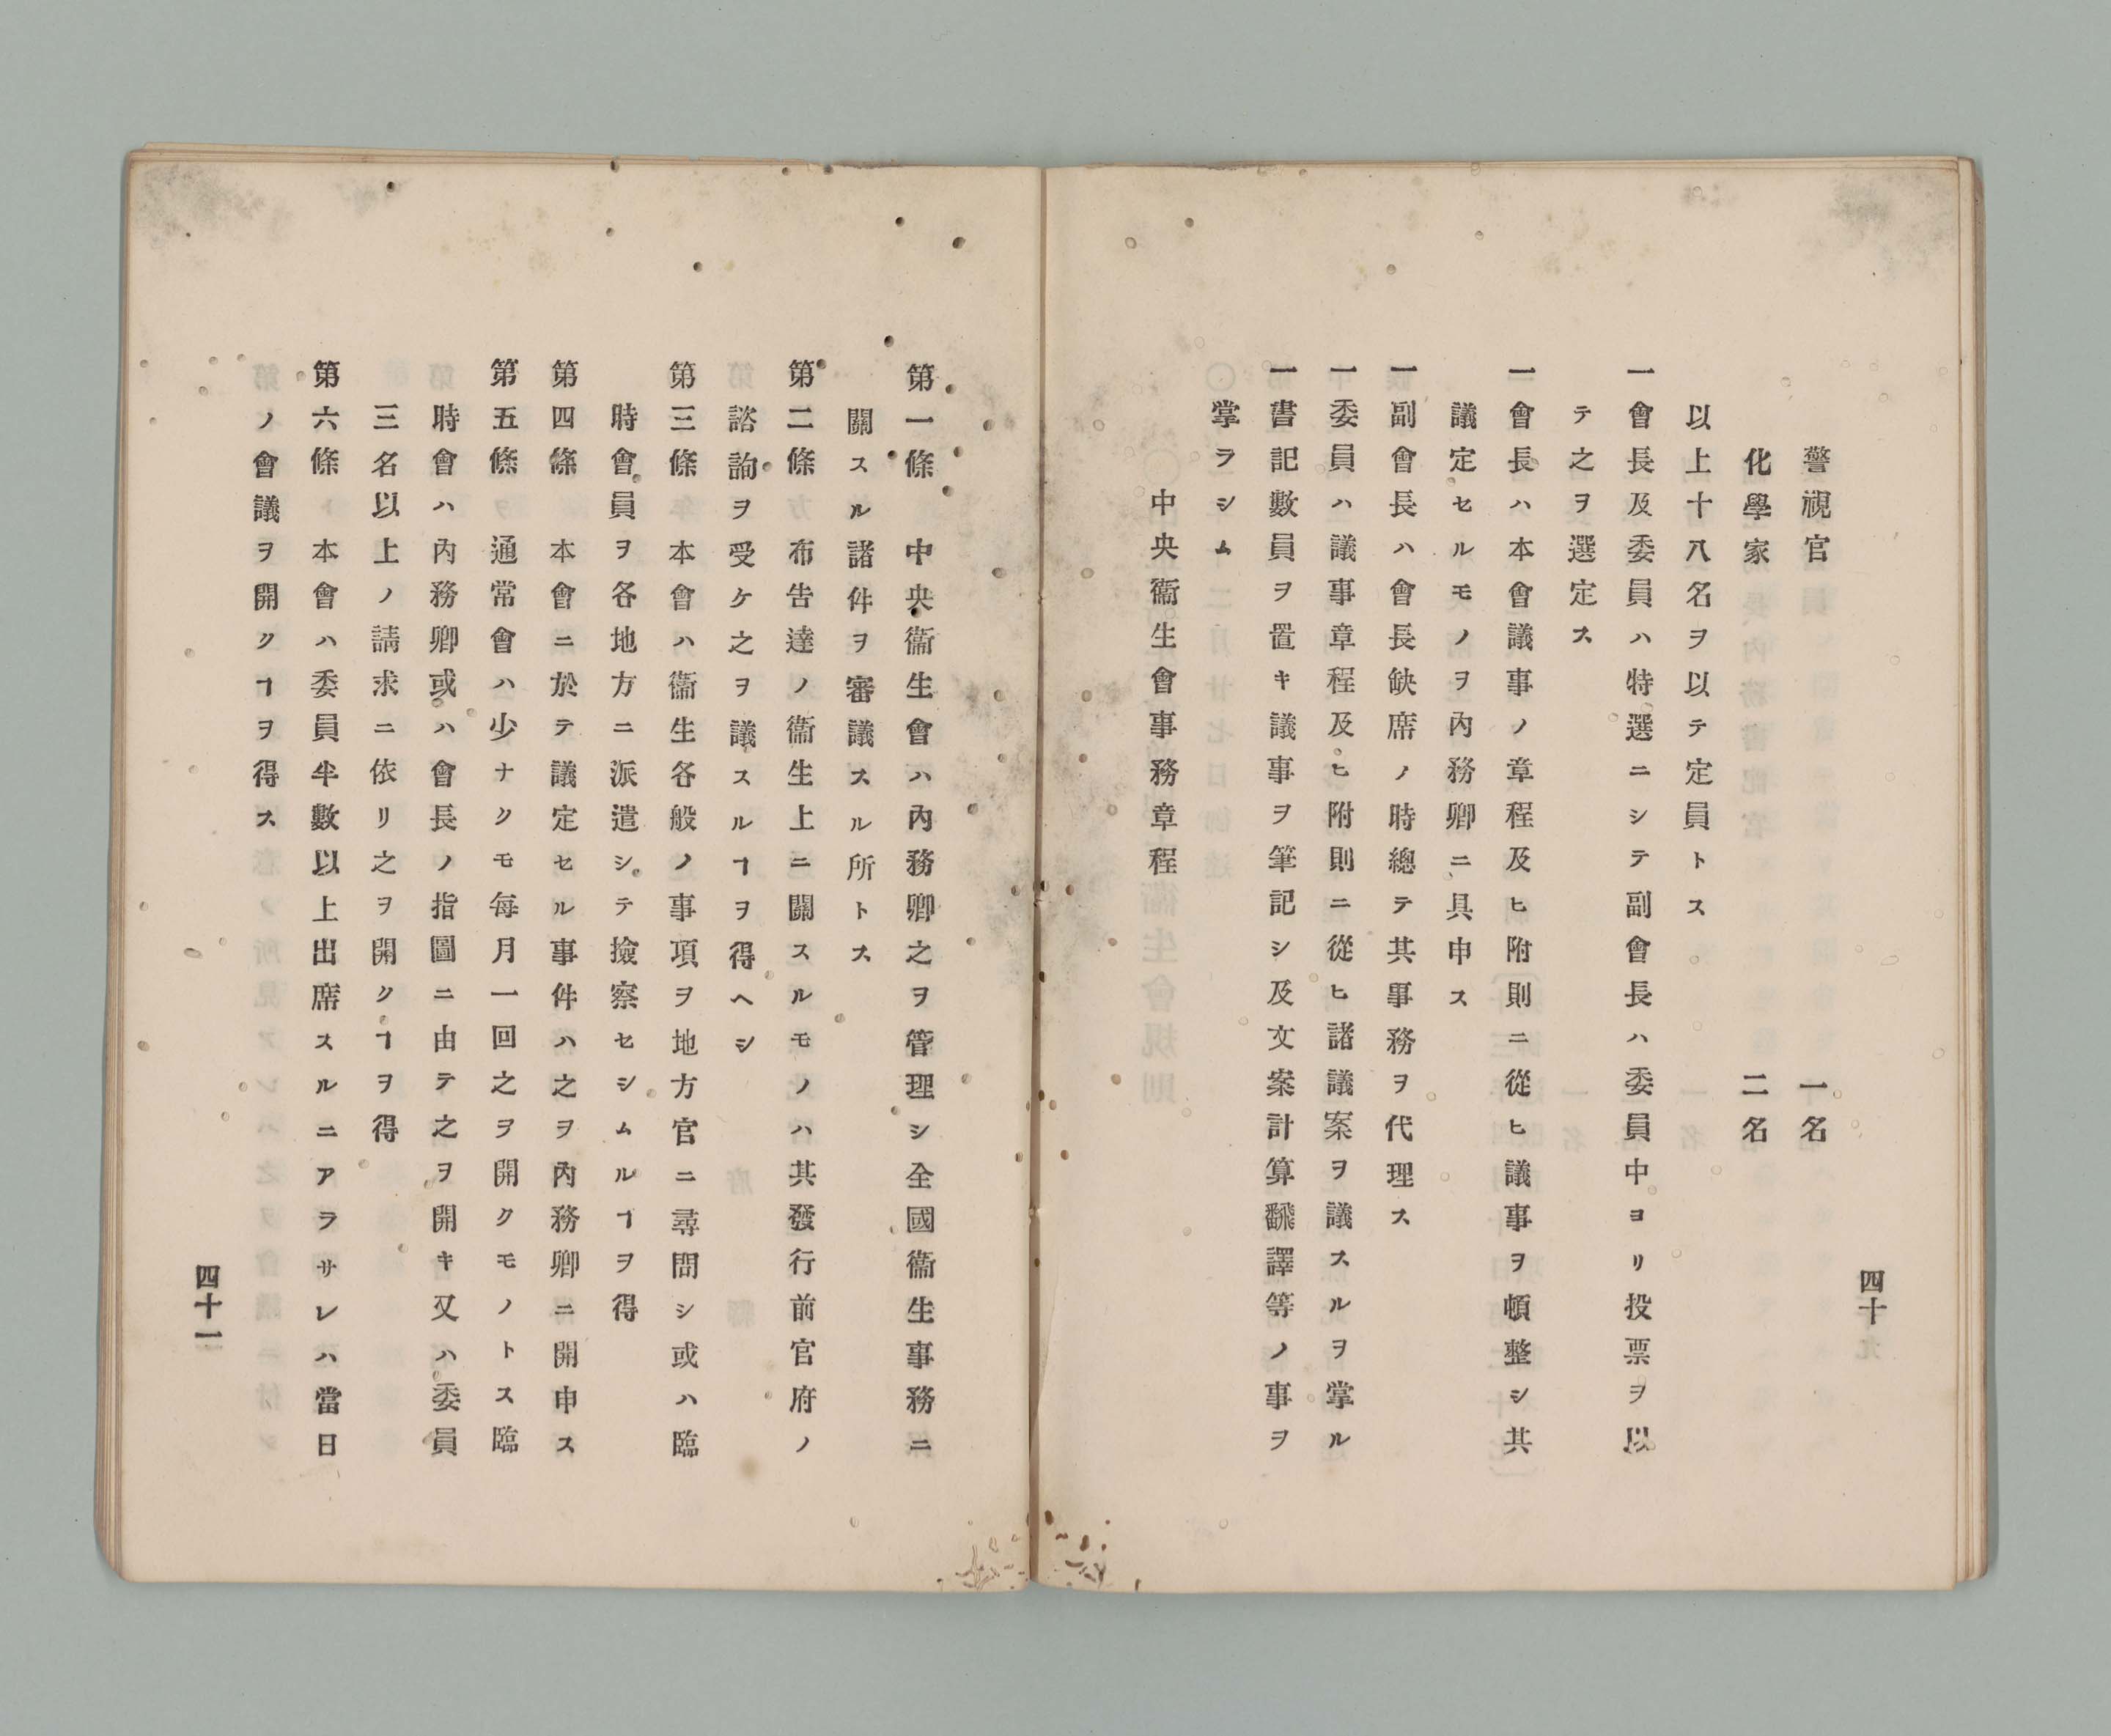 警視官　一名
化學家　二名
以上十八名ヲ以テ定員トス
一會長及委員ハ特選ニシテ副會長ハ委員中ヨリ投票ヲ以
テ之ヲ選定ス
一會長ハ本會議事ノ章程及ヒ附則ニ從ヒ議事ヲ頓整シ其
議定セルモノヲ內務卿ニ具申ス
一副會長ハ會長缺席ノ時總テ其事務ヲ代理ス
一委員ハ議事章程及ヒ附則ニ從ヒ諸議案ヲ議スルヲ掌ル
一書記數員ヲ置キ議事ヲ筆記シ及文案計算飜譯等ノ事ヲ
掌ラシム
中央衞生會事務章程
四十
第一條　中央衞生會ハ內務卿之ヲ管理シ全國衞生事務ニ
關スル諸件ヲ審議スル所トス
第二條　布告達ノ衞生上ニ關スルモノハ其發行前官府ノ
諮詢ヲ受ケ之ヲ議スルヿヲ得ヘシ
第三條　本會ハ衞生各般ノ事項ヲ地方官ニ尋問シ或ハ臨
時會員ヲ各地方ニ派遣シテ撿察セシムルヿヲ得
第四條　本會ニ於テ議定セル事件ハ之ヲ內務卿ニ開申ス
第五條　通常會ハ少ナクモ每月一回之ヲ開クモノトス臨
時會ハ內務卿或ハ會長ノ指圖ニ由テ之ヲ開キ又ハ委員
三名以上ノ請求ニ依リ之ヲ開クヿヲ得
第六條　本會ハ委員半數以上出席スルニアラサレハ當日
ノ會議ヲ開クヿヲ得ス
四十一